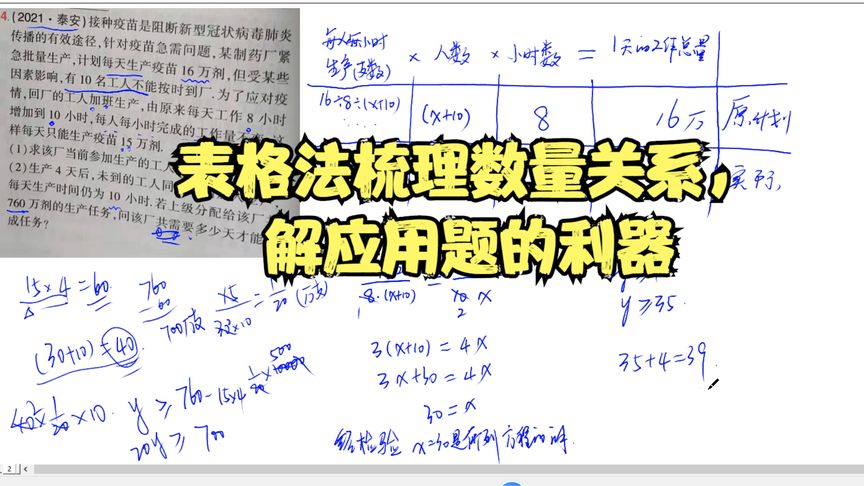 4.(2021·泰安)接种疫苗是阻断新型冠状病毒肺炎
传播的有效途径,针对疫苗急需问题,某制药厂紧
急批量生产,计划每天生产疫苗16万剂,但受某些
因素影响,有10名工人不能按时到厂.为了应对疫
情,回厂的工人加班生产,由原来每天工作8小时
增加到10小时,每人每小时完成的工作量不变,这
样每天只能生产疫苗15万剂.
(1)求该厂当前参加生产的工人
(2)生产4天后,未到的工人同
每天生产时间仍为10小时.若上级分配给该厂
760万剂的生产任务,问该厂共需要多少天才能
成任务?
每人每小时
生产(支数) × 人数 × 小时数 = 1天的工作总量
16÷8÷(x+10) (x+10) 8 16万 原计划
实际
表格法梳理数量关系,
解应用题的利器
15×4=60.
760
60
700万支
(30+10)=40
8·(x+10)
3(x+10)=4x
3x+30=4x
30=x
经检验 x=30是所列方程的解.
y≥760-15×4
20y≥700
y≥35.
35+4=39.
2